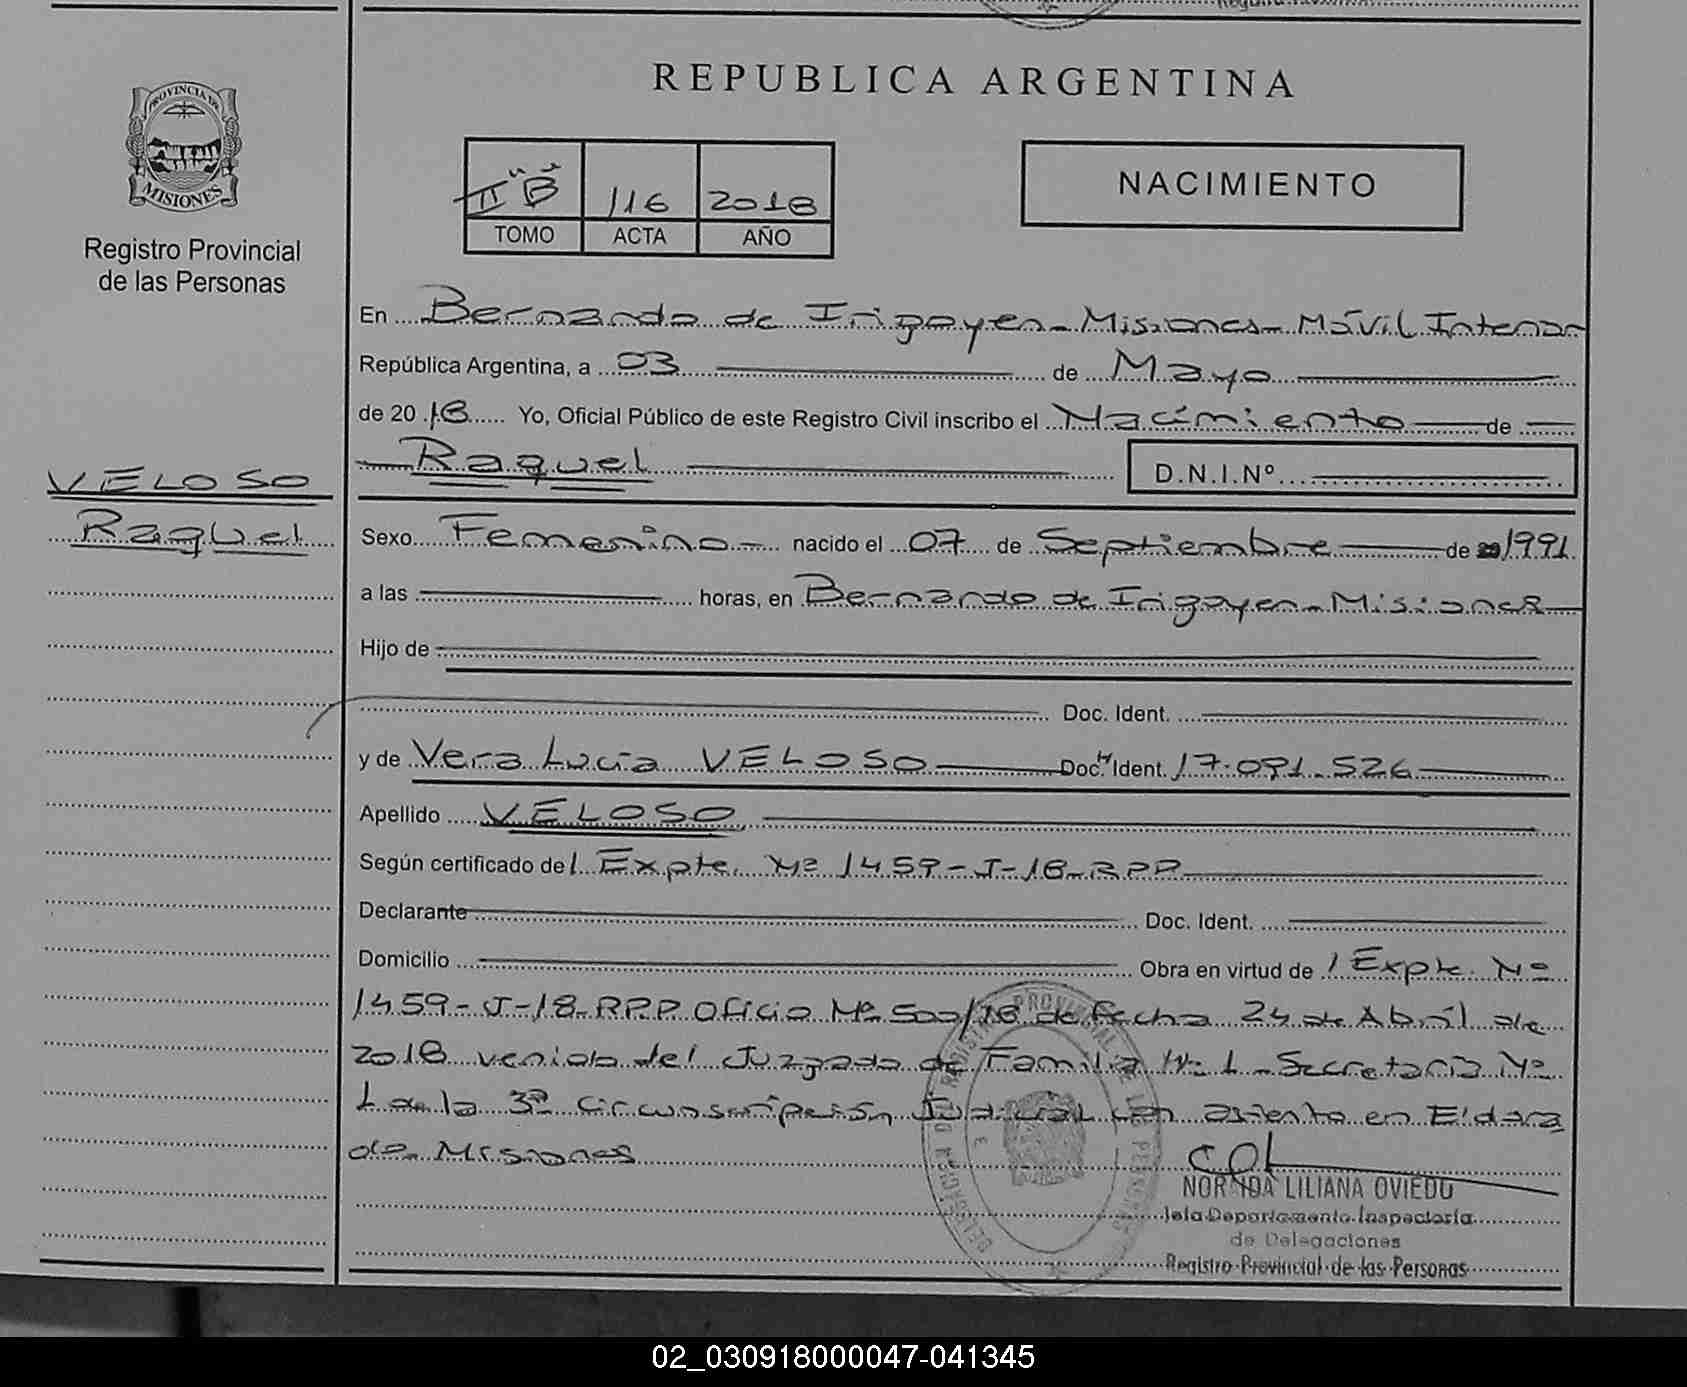 REPUBLICA ARGENTINA
PROVINCIA DE
MISIONES
Registro Provincial
de las Personas
II "B" 116 2018
TOMO ACTA AÑO
NACIMIENTO
En Bernardo de Irigoyen - Misiones - Móvil Interior
República Argentina, a 03 de Mayo
de 2018 Yo, Oficial Público de este Registro Civil inscribo el Nacimiento de
Raquel D.N.I.Nº
VELOSO
Raquel
Sexo Femenino - nacido el 07 de Septiembre de 1991
a las horas, en Bernardo de Irigoyen - Misiones
Hijo de
Doc. Ident.
y de Vera Lucia VELOSO Doc. Ident. 17.091.526
Apellido VELOSO
Según certificado del Expte. Nº 1459-J-18-RPP
Declarante Doc. Ident.
Domicilio Obra en virtud de / Expte. Nº
1459-J-18-RPP Oficio Nº 500/18 de fecha 24 de Abril de
2018 venido del Juzgado de Familia Nº 1 - Secretaría Nº
1 de la 3ª Circunscripción Judicial con asiento en Eldora
do - Misiones
NORMIDA LILIANA OVIEDO
Jefa Departamento Inspectoría
de Delegaciones
Registro Provincial de las Personas
02_030918000047-041345